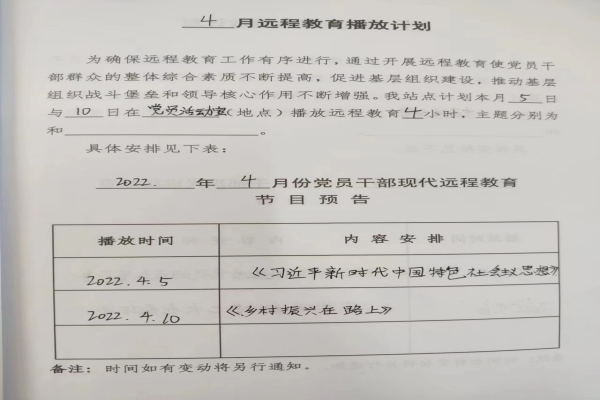 4月远程教育播放计划
为确保远程教育工作有序进行，通过开展远程教育使党员干
部群众的整体综合素质不断提高，促进基层组织建设，推动基层
组织战斗堡垒和领导核心作用不断增强。我站点计划本月5日
与10日在党员活动室（地点）播放远程教育4小时，主题分别为
和。
具体安排见下表：
2022.年4月份党员干部现代远程教育
节目预告
播放时间 内容安排
2022.4.5 《习近平新时代中国特色社会主义思想》
2022.4.10 《乡村振兴在路上》
备注：时间如有变动将另行通知。